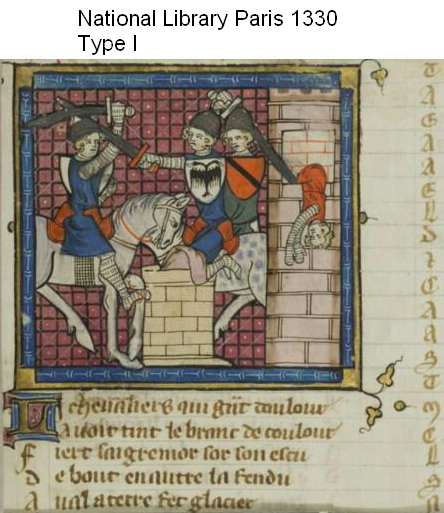 National Library Paris 1330
Type I
Li chevaliers qui gñt doulour
Avoit tint le branc de coulour
Fiert saigremor sor son escu
De bout en autre la fendu
Aval a terre fet glacier